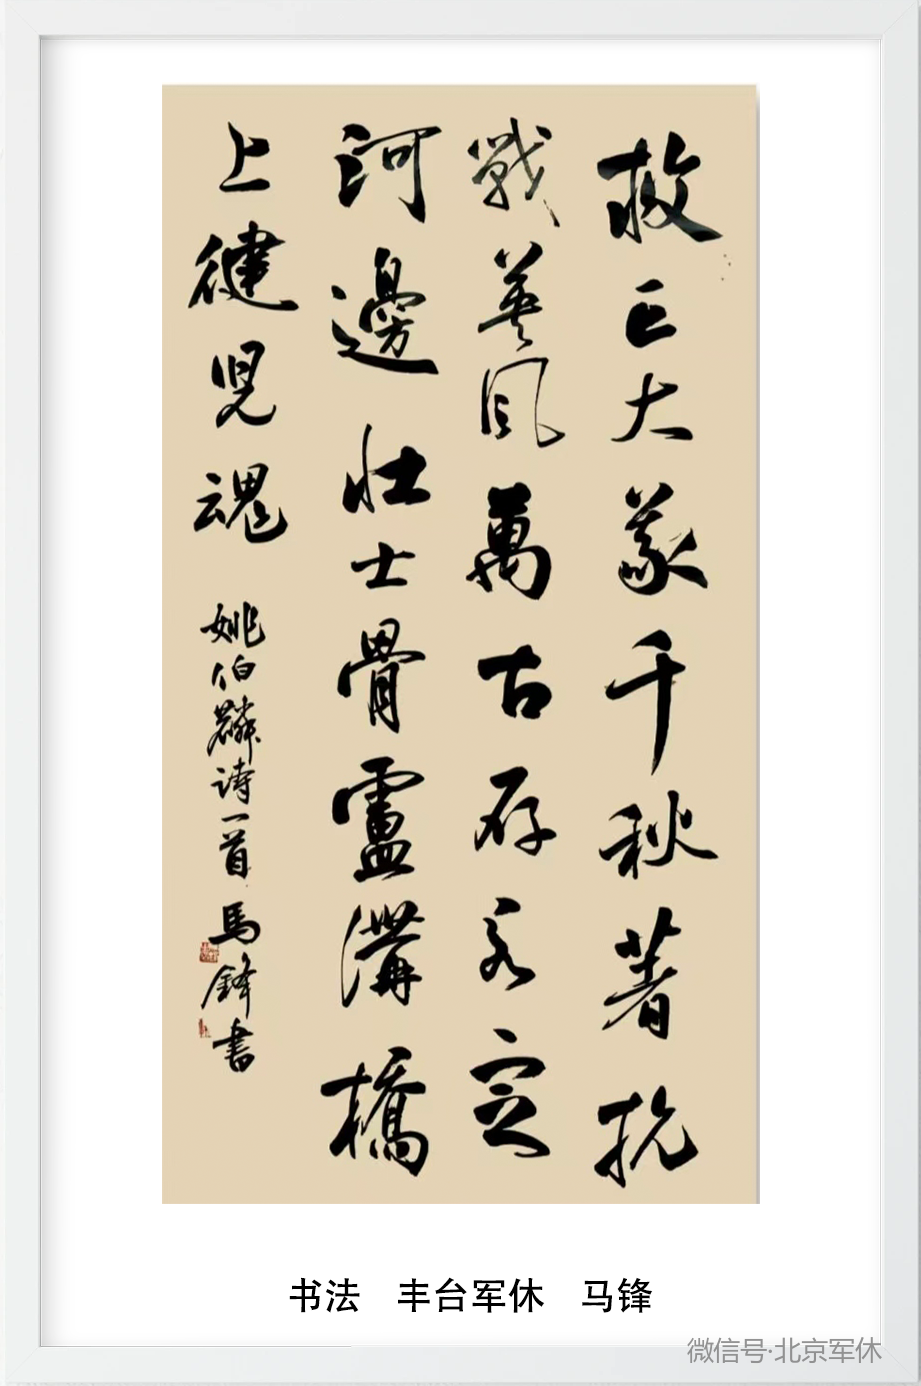 救亡大義千秋著抗
戰英風萬古存永定
河邊壯士骨盧溝橋
上健兒魂
姚伯麟诗一首 馬鋒書
书法 丰台军休 马锋
微信号·北京军休